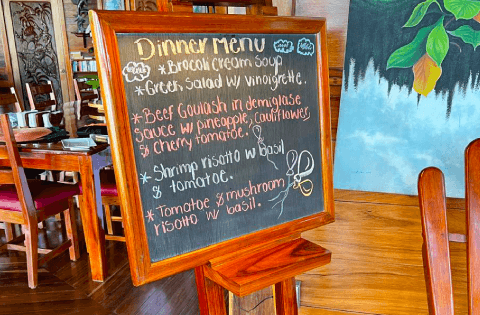 Dinner Menu
* Brocoli cream soup
* Green salad w/ vinaigrette.
* Beef Goulash in demiglase
sauce w/ pineapple, cauliflower,
& cherry tomatoe.
* Shrimp risotto w basil
& tomatoe.
* Tomatoe & mushroom
risotto w/ basil.